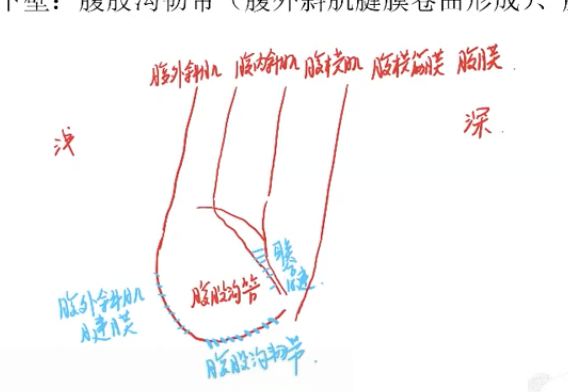 下壁：腹股沟韧带（腹外斜肌腱膜卷曲形成）、
腹外斜肌 腹内斜肌 腹横肌 腹横筋膜 腹膜
浅
深
联合腱
腹股沟管
腹外斜肌
腱膜
腹股沟韧带